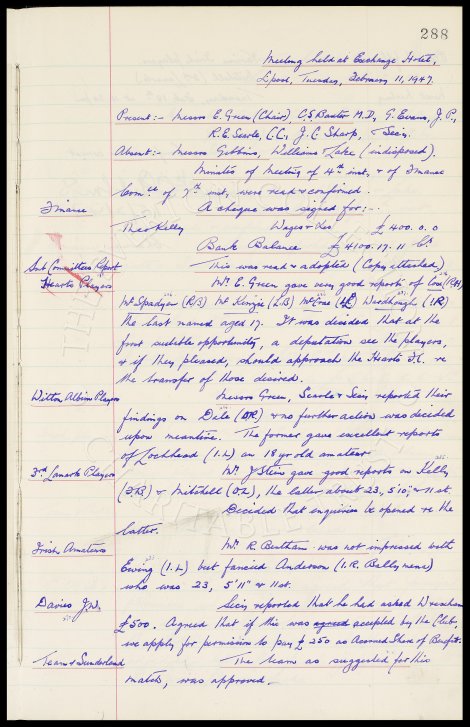 288
Meeting held at Exchange Hotel,
L'pool, Tuesday, February 11, 1947.
Present:- Messrs E. Green (Chair), C.S. Baxter M.D., G. Evans, J.P.,
R.E. Searle, C.C., J.C. Sharp, & Secy.
Absent:- Messrs Gibbins, Williams & Lake (indisposed).
Minutes of Meeting of 4th inst, & of Finance
Com'ee of 7th inst, were read & confirmed.
Finance
A cheque was signed for:-
Theo Kelly Wages & Exs £400. 0. 0
Bank Balance £4100. 17. 11 Cr
Sub Committee's Report
This was read & adopted (Copy attached)
Hearts Players
Mr. E. Green gave very good reports of Cox (RH)
McSpadyen (RB) McKenzie (LB) McCrae Wardhaugh (IR)
the last named aged 17. It was decided that at the
first suitable opportunity, a deputation see the players,
& if they pleased, should approach the Hearts F.C. re
the transfer of those desired.
Witton Albion Players
Messrs Green, Searle & Secy reported their
findings on (OR) & no further action was decided
upon meantime. The former gave excellent reports
of Lockhead (I.L) an 18 yr old amateur
3rd Lanark Players
Mr. J Steen gave good reports on Kelly
& Mitchell (O.L), the latter about 23, 5'10" & 11 st.
Decided that enquiries be opened re the
latter.
Irish Amateurs
Mr. R. Bentham was not impressed with
Ewing (I.L) but fancied Anderson (I.R. Ballymena)
who was 23, 5'11" & 11 st.
Davies J.W.
Secy reported that he had asked Wrexham
£500. Agreed that if this was agreed accepted by the Club,
we apply for permission to pay £250 as Accrued Share of Benefit.
Team v Sunderland
The team as suggested for this
match, was approved.